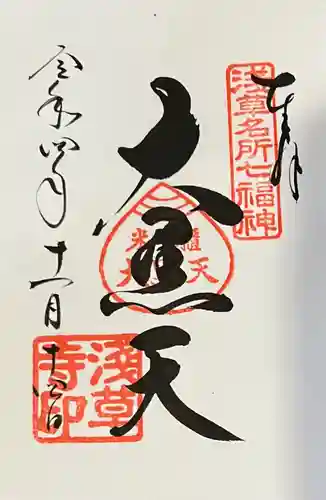 奉拝
浅草名所七福神
大黒天
令和四年十一月十四日
浅草寺印